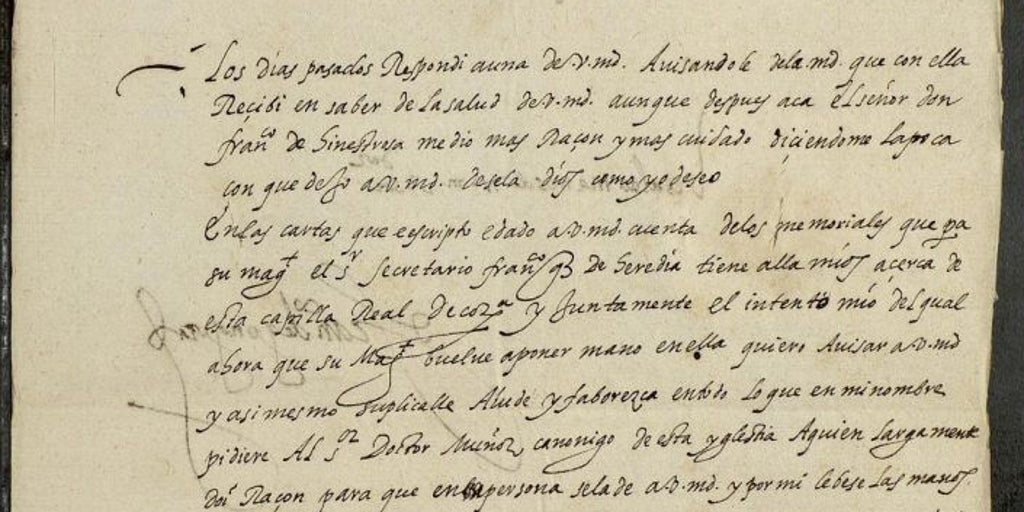 Los dias pasados Respondi auna de v.md. Auisandole dela.md. que con ella
Recibi en saber de la salud de v.md. aunque despues aca el señor don
fran.co de hinestrosa me dio mas Raçon y mas cuidado diçiendome la poca
con que deJo a v.md. desela dios como yo deseo
En las cartas que e escripto e dado a v.md. cuenta de los memoriales que pa
su mag.t el s.r secretario fran.co de heredia tiene alla mios açerca de
esta capilla Real de cor.a y Juntamente el intento mio del qual
ahora que su Mag.t buelue a poner mano en ella quiero Auisar a v.md
y asi mesmo suplicalle Aiude y faborezca en todo lo que en mi nombre
pidiere Al s.or Doctor Muñoz canonigo de esta yglesia A quien largamente
doi Raçon para que en persona se la de a v.md. y por mi le bese las manos.